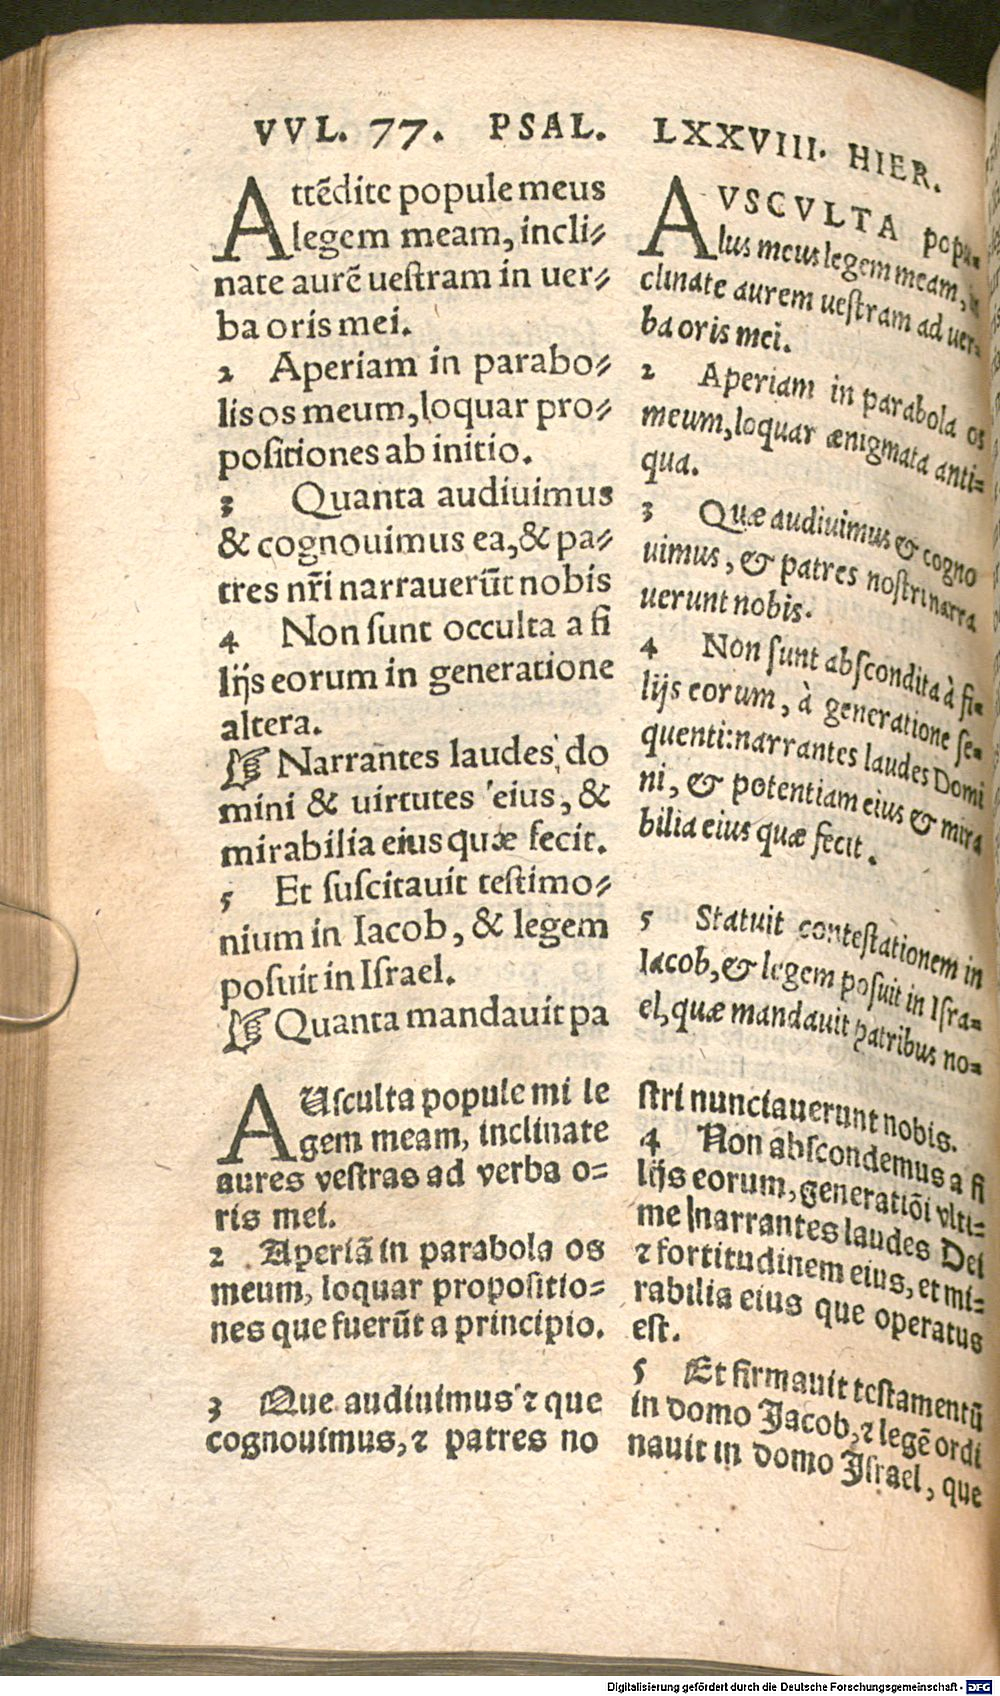 VVL. 77. PSAL. LXXVIII. HIER.
Attẽdite popule meus
legem meam, incli⸗
nate aurẽ uestram in uer⸗
ba oris mei.
2 Aperiam in parabo⸗
lis os meum, loquar pro⸗
positiones ab initio.
3 Quanta audiuimus
& cognouimus ea, & pa⸗
tres nr̃i narrauerũt nobis
4 Non sunt occulta a fi
lijs eorum in generatione
altera.
☞ Narrantes laudes do
mini & uirtutes eius, &
mirabilia eius quæ fecit.
5 Et suscitauit testimo⸗
nium in Iacob, & legem
posuit in Israel.
☞ Quanta mandauit pa
AVSCVLTA popu⸗
lus meus legem meam, in
clinate aurem uestram ad uer⸗
ba oris mei.
2 Aperiam in parabola os
meum, loquar ænigmata anti⸗
qua.
3 Quæ audiuimus & cogno
uimus, & patres nostri narra
uerunt nobis.
4 Non sunt abscondita à fi⸗
lijs eorum, à generatione se⸗
quenti: narrantes laudes Domi
ni, & potentiam eius & mira
bilia eius quæ fecit.
5 Statuit contestationem in
Iacob, & legem posuit in Isra⸗
el, quæ mandauit patribus no⸗
AUsculta popule mi le
gem meam, inclinate
aures vestras ad verba o⸗
ris mei.
2 Aperiã in parabola os
meum, loquar propositio⸗
nes que fuerũt a principio.
3 Que audiuimus ⁊ que
cognouimus, ⁊ patres no
stri nunciauerunt nobis.
4 Non abscondemus a fi
lijs eorum, generatiõi vlti⸗
me narrantes laudes Dei
⁊ fortitudinem eius, et mi⸗
rabilia eius que operatus
est.
5 Et firmauit testamentũ
in domo Jacob, ⁊ legẽ ordi
nauit in domo Israel, que
Digitalisierung gefördert durch die Deutsche Forschungsgemeinschaft - DFG